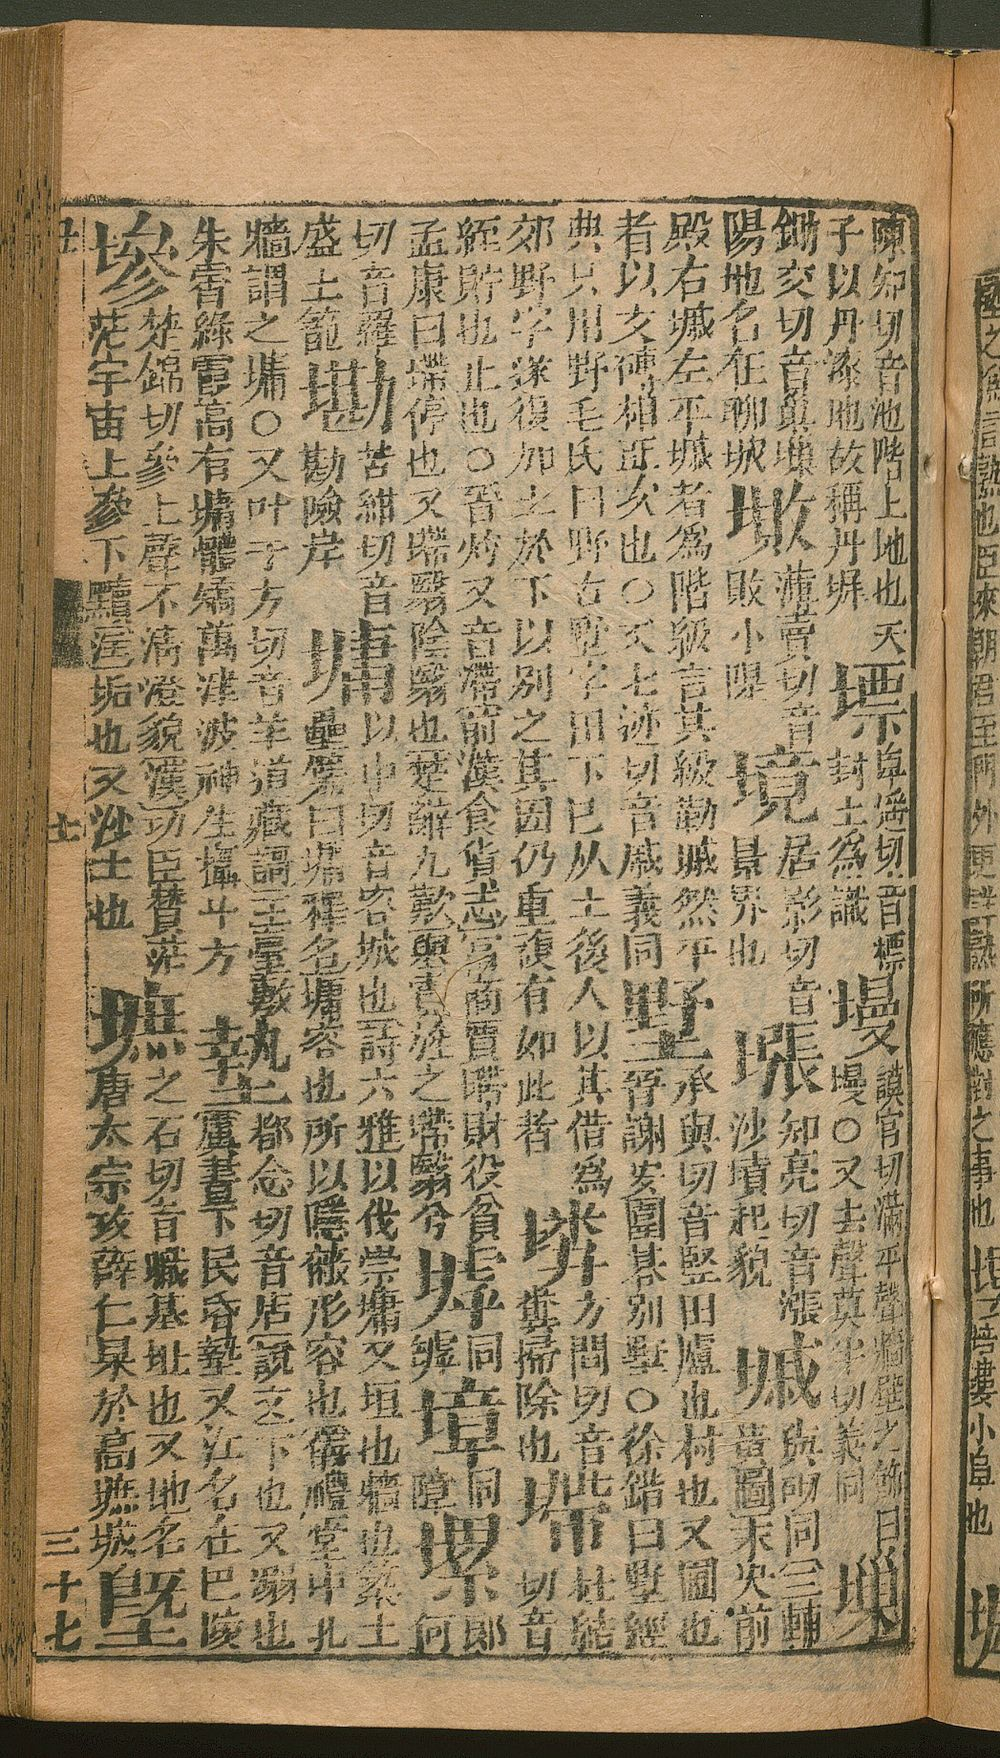 陳知切音池階上地也天
子以丹漆地故稱丹墀
墂
卑遥切音標
封土爲識
墁
謨官切滿平聲牆壁之飾曰
墁○又去聲莫半切義同
鋤交切音
陽地名在聊城
薄賣切音
敗小隄
境
居影切音
景界也
知亮切音漲
沙墳起貌
墄
與砌同三輔
黃圖未央前
殿右墄左平墄者爲階級言其級勒墄然平
者以文磚相亞次也○又七迹切音慼義同
墅
承與切音竪田廬也村也又圃也
晉謝安圍碁别墅○徐鍇曰墅經
典只用野毛氏曰野古墅字田下已从土後人以其借爲
郊野字遂復加土於下以别之其因仍重複有如此者
方問切音
糞掃除也
墆
杜結
切音
絰貯也止也○晉灼又音滯前漢食貨志富商賈墆財役貧
孟康曰墆停也又墆翳陰翳也楚辭九歎舉霓旌之墆翳兮
同
罅
墇
同
障
郎
何
切音羅
盛土籠
墈
苦紺切音
勘險岸
墉
以中切音容城也詩六雅以伐崇墉又垣也牆也築土
壘壁曰墉釋名墉容也所以隱蔽形容也儀禮堂中北
牆謂之墉○又叶于方切音羊道藏謌玉臺敷
朱霄綠霞高有墉萬津波神生攝斗方
墊
都念切音店說文下也又溺也
虞書下民昏墊又江名在巴陵
墋
楚錦切參上聲不淸澄貌漢功臣贊茫
茫宇宙上墋下黷注垢也又沙土也
墍
墌
之石切音職基址也又地名
唐太宗攻薛仁杲於高墌城
丑
土
三十七